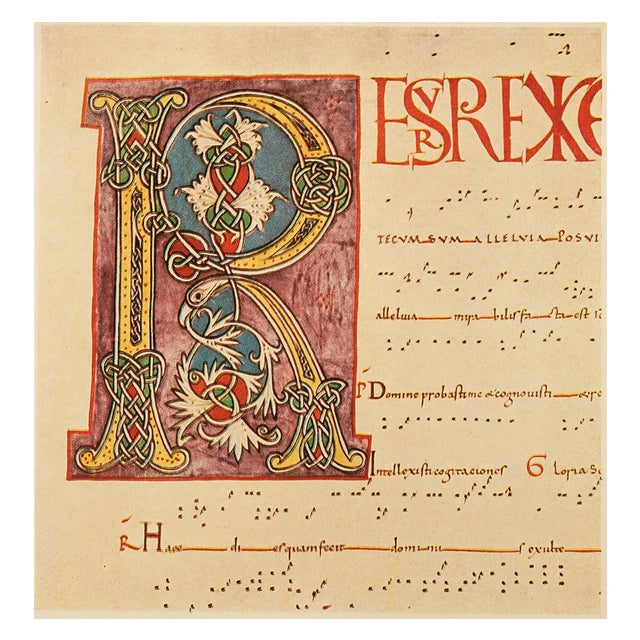 RESURREXI ET
TECUM SUM ALLELUIA POSUI
alleluia mirabilis facta est
P Domine probasti me & cognovisti
Intellexisti cogitaciones Gloria
R Haec dies quam fecit dominus exulte